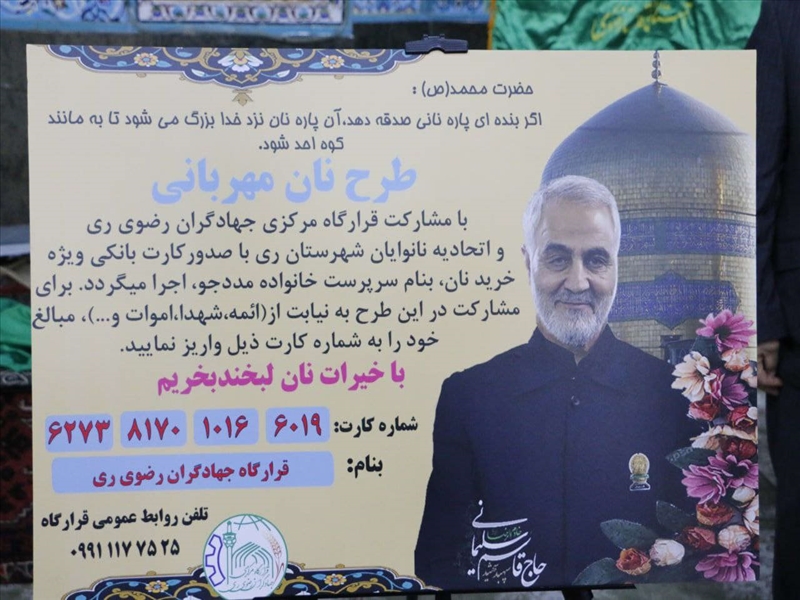 حضرت محمد(ص) :
اگر بنده ای پاره نانی صدقه دهد،آن پاره نان نزد خدا بزرگ می شود تا به مانند
کوه احد شود.
طرح نان مهربانی
با مشارکت قرارگاه مرکزی جهادگران رضوی ری
و اتحادیه نانوایان شهرستان ری با صدورکارت بانکی ویژه
خرید نان، بنام سرپرست خانواده مددجو، اجرا میگردد. برای
مشارکت در این طرح به نیابت از(ائمه،شهدا،اموات و...)، مبالغ
خود را به شماره کارت ذیل واریز نمایید.
با خیرات نان لبخندبخریم
شماره کارت: ۶۰۱۹ ۱۰۱۶ ۸۱۷۰ ۶۲۷۳
بنام: قرارگاه جهادگران رضوی ری
تلفن روابط عمومی قرارگاه
۰۹۹۱ ۱۱۷ ۷۵ ۲۵
حاج قاسم سلیمانی
سپهبد شهید